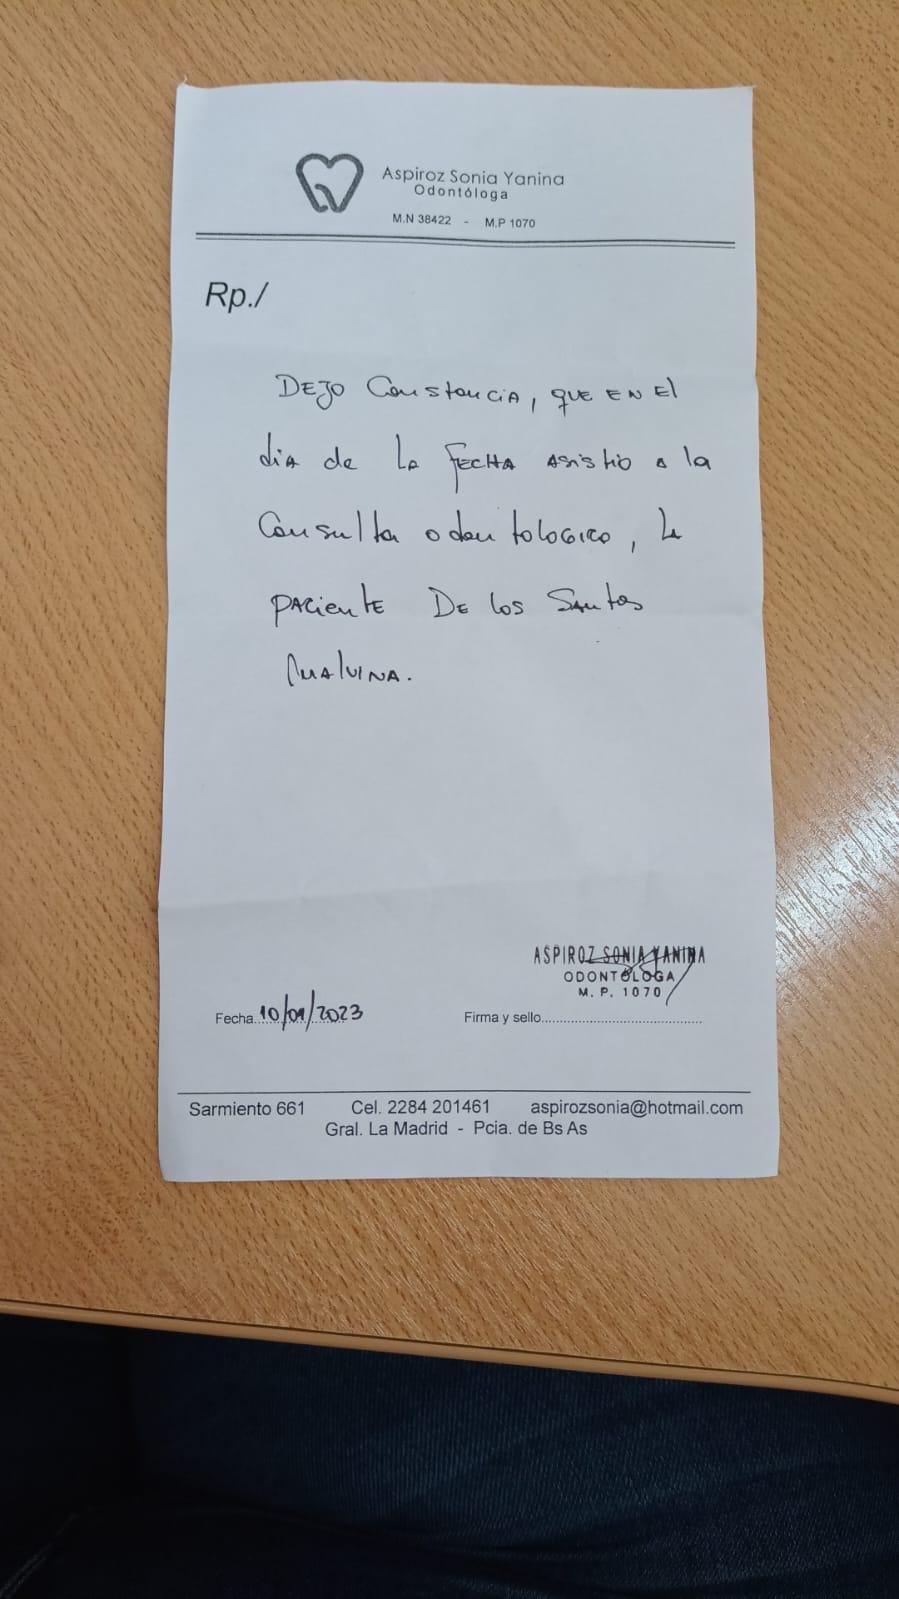 Aspiroz Sonia Yanina
Odontóloga
M.N 38422 - M.P 1070
Rp./
DEJO Constancia, QUE EN El
dia de la FECHA Asistio a la
Consulta odontologica, la
PACiente DE los Santos
MALVINA.
ASPIROZ SONIA YANINA
ODONTÓLOGA
M. P. 1070
Fecha 10/01/2023
Firma y sello
Sarmiento 661 Cel. 2284 201461 aspirozsonia@hotmail.com
Gral. La Madrid - Pcia. de Bs As